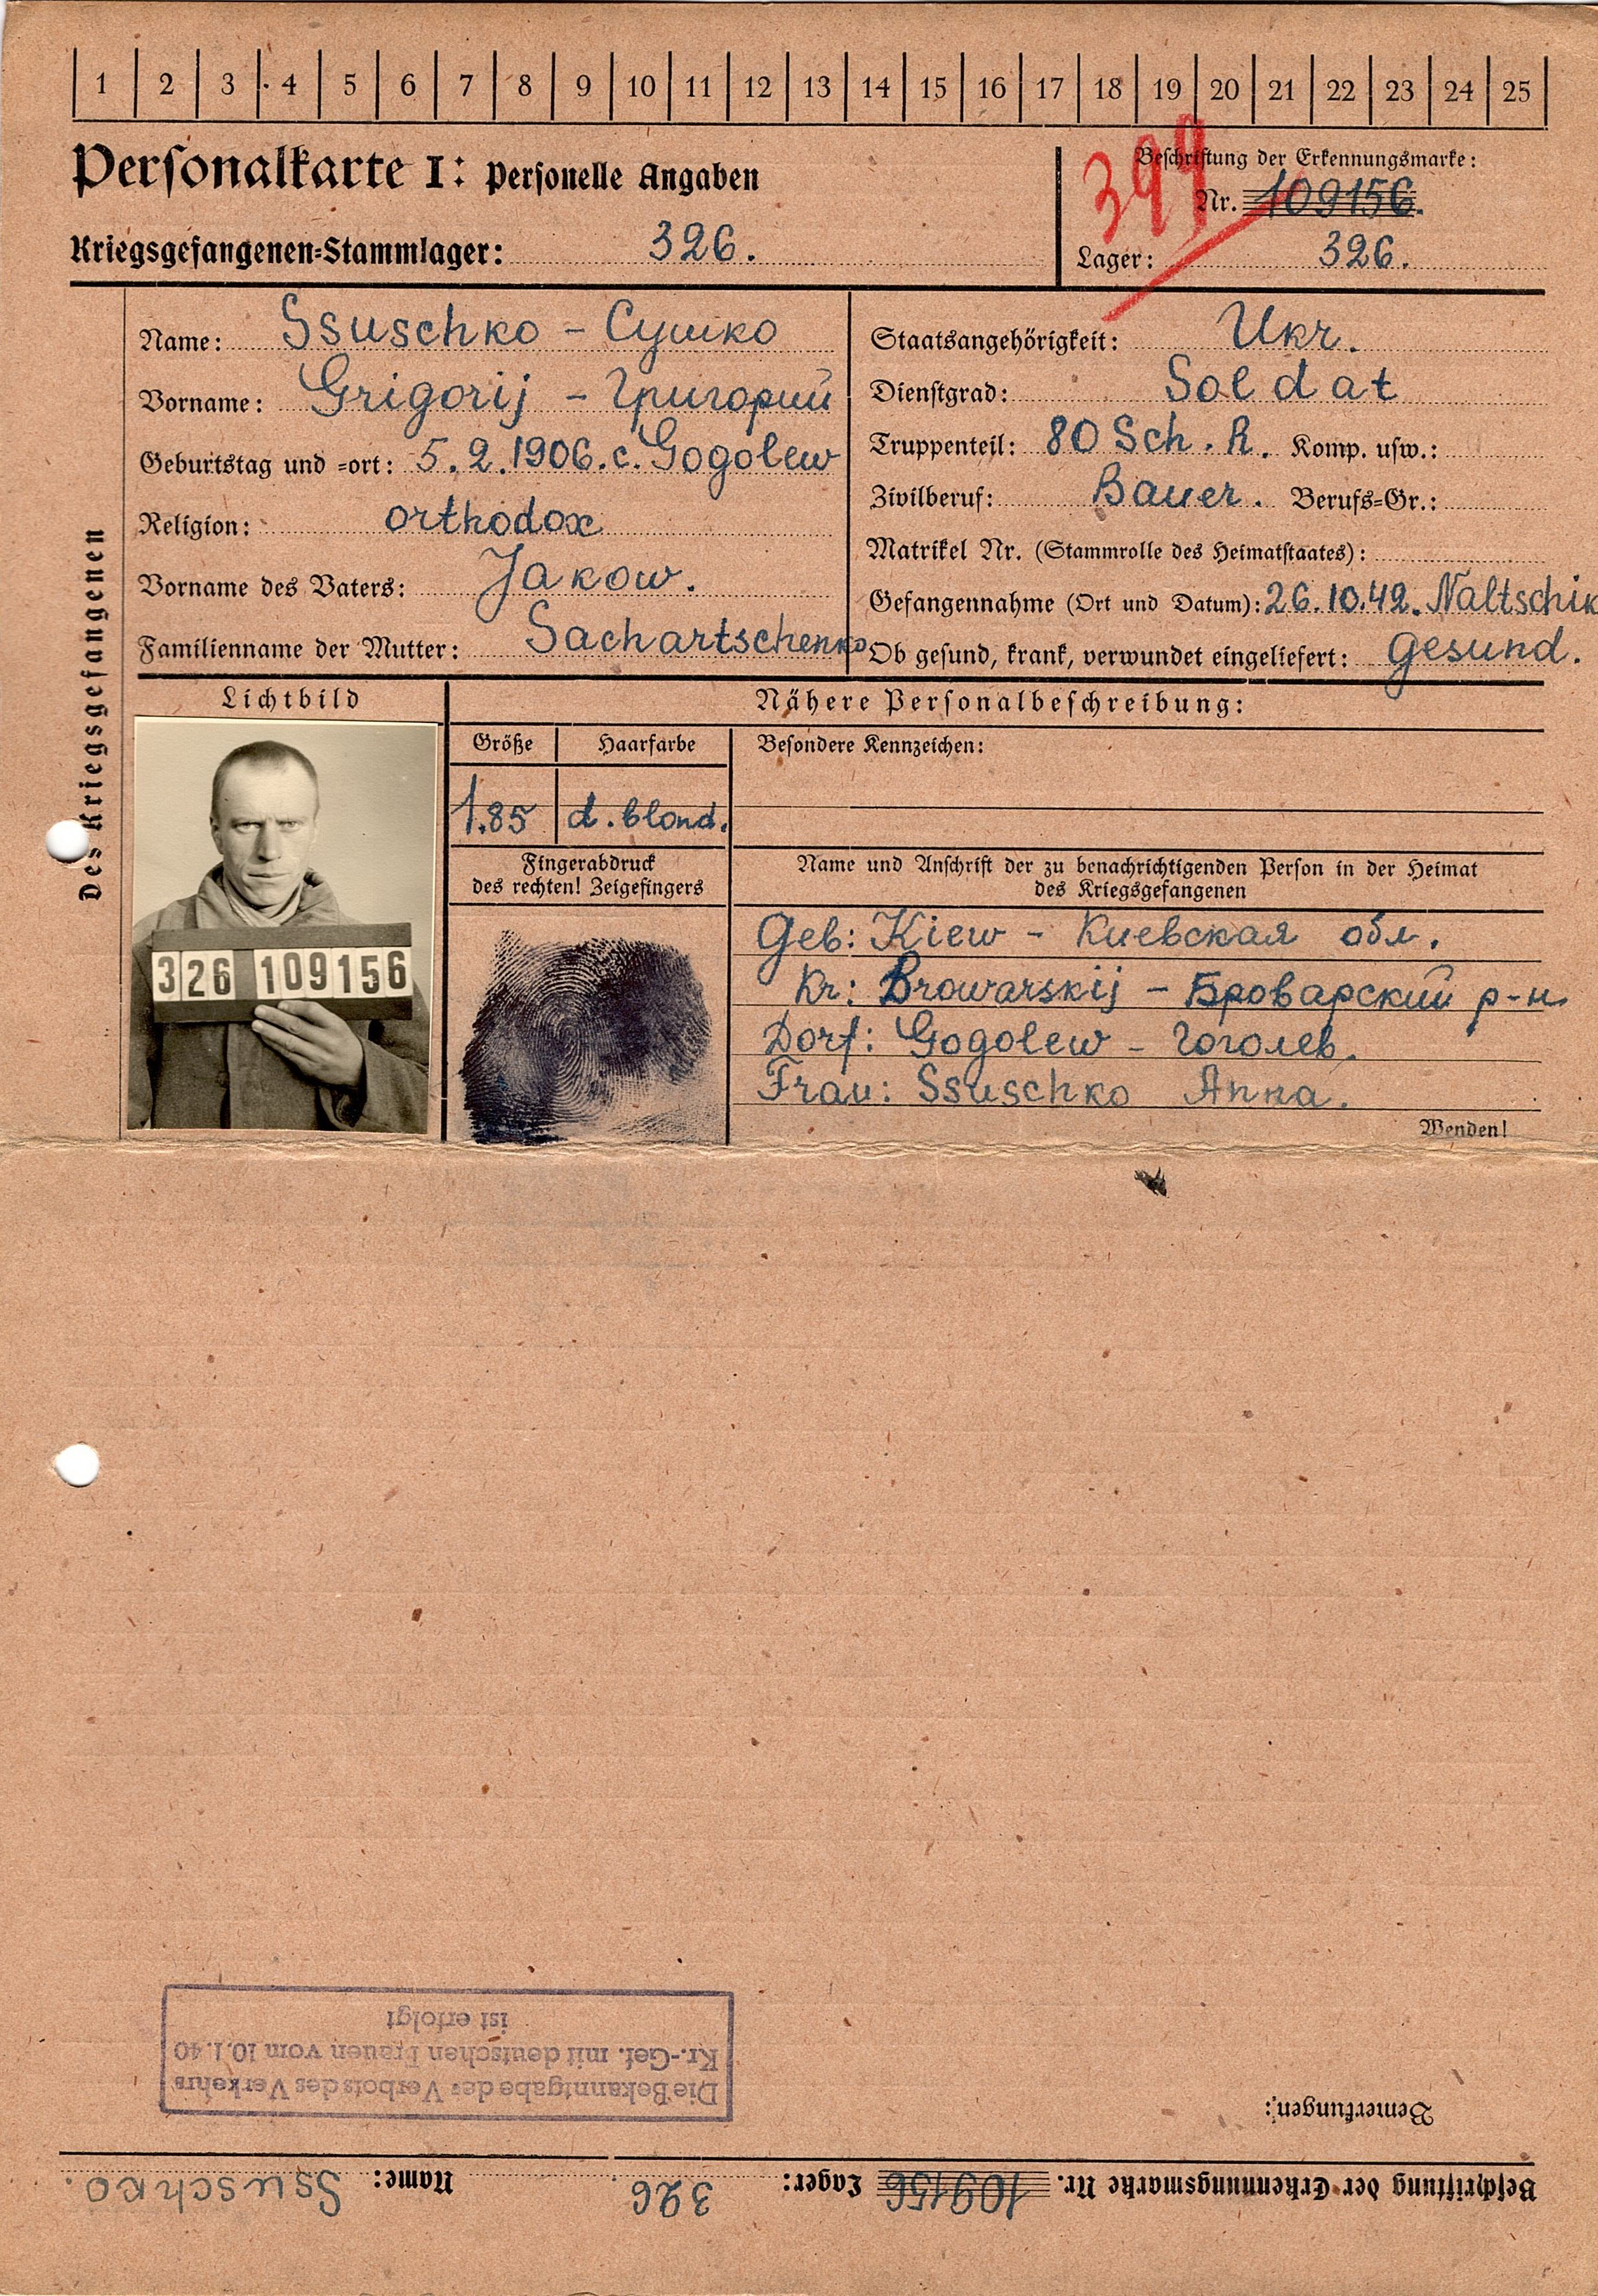 1 2 3 4 5 6 7 8 9 10 11 12 13 14 15 16 17 18 19 20 21 22 23 24 25
Personalkarte I: Personelle Angaben
Kriegsgefangenen-Stammlager: 326.
399
Beschriftung der Erkennungsmarke:
Nr. 109156.
Lager: 326.
Des Kriegsgefangenen
Name: Ssuschko - Сушко
Vorname: Grigorij - Григорий
Geburtstag und -ort: 5.2.1906. с. Gogolew
Religion: orthodox
Vorname des Vaters: Jakow.
Familienname der Mutter: Sachartschenko
Staatsangehörigkeit: Ukr.
Dienstgrad: Soldat
Truppenteil: 80 Sch. R. Komp. usw.:
Zivilberuf: Bauer. Berufs-Gr.:
Matrikel Nr. (Stammrolle des Heimatstaates):
Gefangennahme (Ort und Datum): 26.10.42. Naltschik
Ob gesund, krank, verwundet eingeliefert: gesund.
Lichtbild
326 109156
Nähere Personalbeschreibung:
Größe Haarfarbe
1.85 d. blond.
Besondere Kennzeichen:
Fingerabdruck
des rechten! Zeigefingers
Name und Anschrift der zu benachrichtigenden Person in der Heimat
des Kriegsgefangenen
Geb: Kiew - Киевская обл.
Kr: Browarskij - Броварский р-н
Dorf: Gogolew - Гоголев.
Frau: Ssuschko Anna.
Wenden!
Beschriftung der Erkennungsmarke Nr. 109156 Lager: 326 Name: Ssuschko.
Bemerkungen:
Die Bekanntgabe des Verbots des Verkehrs
Kr.-Gef. mit deutschen Frauen vom 10.1.40
ist erfolgt